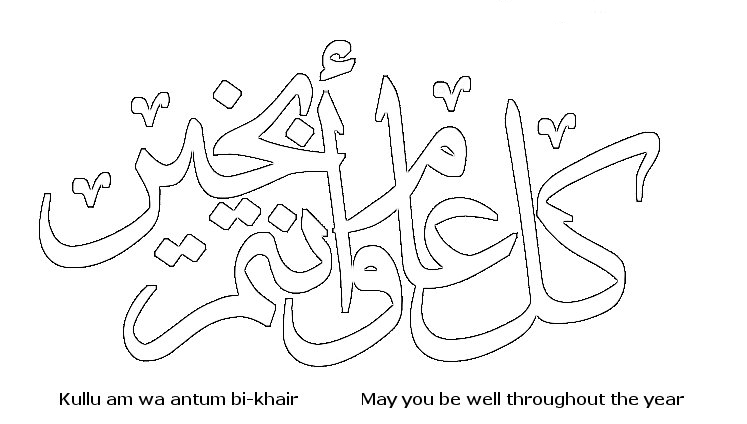 كل عام وأنتم بخير
Kullu am wa antum bi-khair May you be well throughout the year